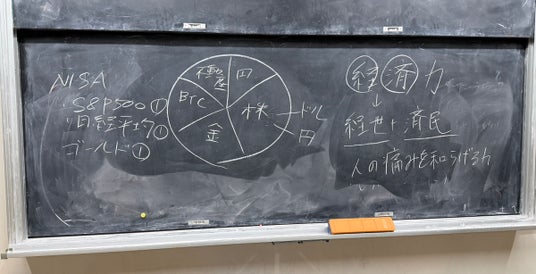 NISA
・S&P500①
・日経平均①
ゴールド①
不動産
円
BTC
株
金
ドル
円
経済力
↓
経世+済民
人の痛みを和らげる力